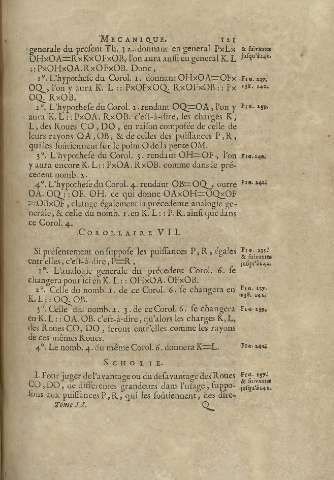 MECANIQUE. 121
generale du present Th. 32. donnant en general P×L×
OH×OA=R×K×OF×OB, l'on aura aussi en general K. L
:: P×OH×OA. R×OF×OB. Donc,
1°. L'hypothese du Corol. 1. donnant OH×OA=OF×
OQ, l'on y aura K. L ::
2°. L'hypothese du Corol. 2. rendant OQ=OA, l'on y
aura K. L :: P×OA. R×OB. c'est-à-dire, les charges K,
L, des Roues CO, DO, en raison composée de celle de
leurs rayons OA, OB, & de celles des puissances P, R,
qui les soutiennent sur le point O de la pente OM.
3°. L'hypothese du Corol. 3. rendant OH=OF, l'on
y aura encore K. L :: P×OA. R×OB. comme dans le pré-
cedent nomb. 2.
4°. L'hypothese du Corol. 4. rendant OB=OQ, outre
OA. OQ :: OF. OH. ce qui donne OA×OH=OQ×OF
=OB×OF, change également la précedente analogie ge-
nerale, & celle du nomb. 1. en K. L :: P. R. ainsi que dans
ce Corol. 4.
COROLLAIRE VII.
Si présentement on suppose les puissances P, R, égales
entr'elles, c'est-à-dire, P=R,
1°. L'analogie generale du précedent Corol. 6. se
changera pour ici en K. L :: OH×OA. OF×OB.
2°. Celle du nomb. 1. de ce Corol. 6. se changera en
K. L :: OQ. OB.
3°. Celle du nomb. 2. 3. de ce Corol. 6. se changera
en K. L :: OA. OB. c'est-à-dire, qu'alors les charges K, L,
des Roues CO, DO, seront entr'elles comme les rayons
de ces mêmes Roues.
4°. Le nomb. 4. du même Corol. 6. donnera K=L.
SCHOLIE.
I. Pour juger de l'avantage ou du desavantage des Roues
CO, DO, de differentes grandeurs dans l'usage, suppo-
sons aux puissances P, R, qui les soutiennent, des dire-
Tome II. Q
& suivantes
FIG. 239.
FIG. 242.
FIG. 237.
& suivantes